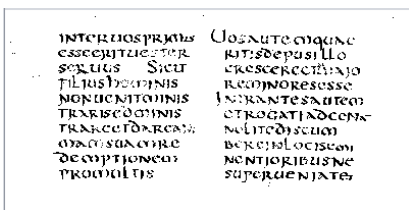 INTERUOSPRIMUS
ESSEERITUESTER
SERUUS SICUT
FILIUSHOMINIS
NONUENITMINIS
TRARISEDMINIS
TRAREETDAREANI
MAMSUAMRE
DEMPTIONEM
PROMULTIS
UOSAUTEMQUAE
RITISDEPUSILLO
CRESCEREETMAIO
REMINORESESSE
INTRANTESAUTEM
ETROGATIADCENA
NOLITEDISCUM
BEREINLOCISEMI
NENTIORIBUSNE
SUPERUENIATE